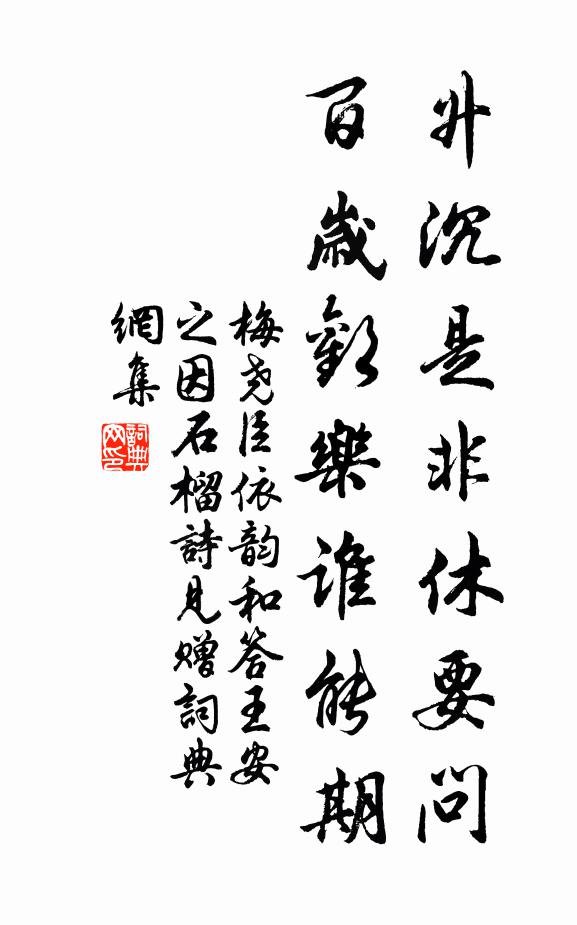 升沉是非休要問
百歲歡樂誰能期
梅尧臣依韵和答王安
之因石榴詩見贈詞典
網集
詞典
网印